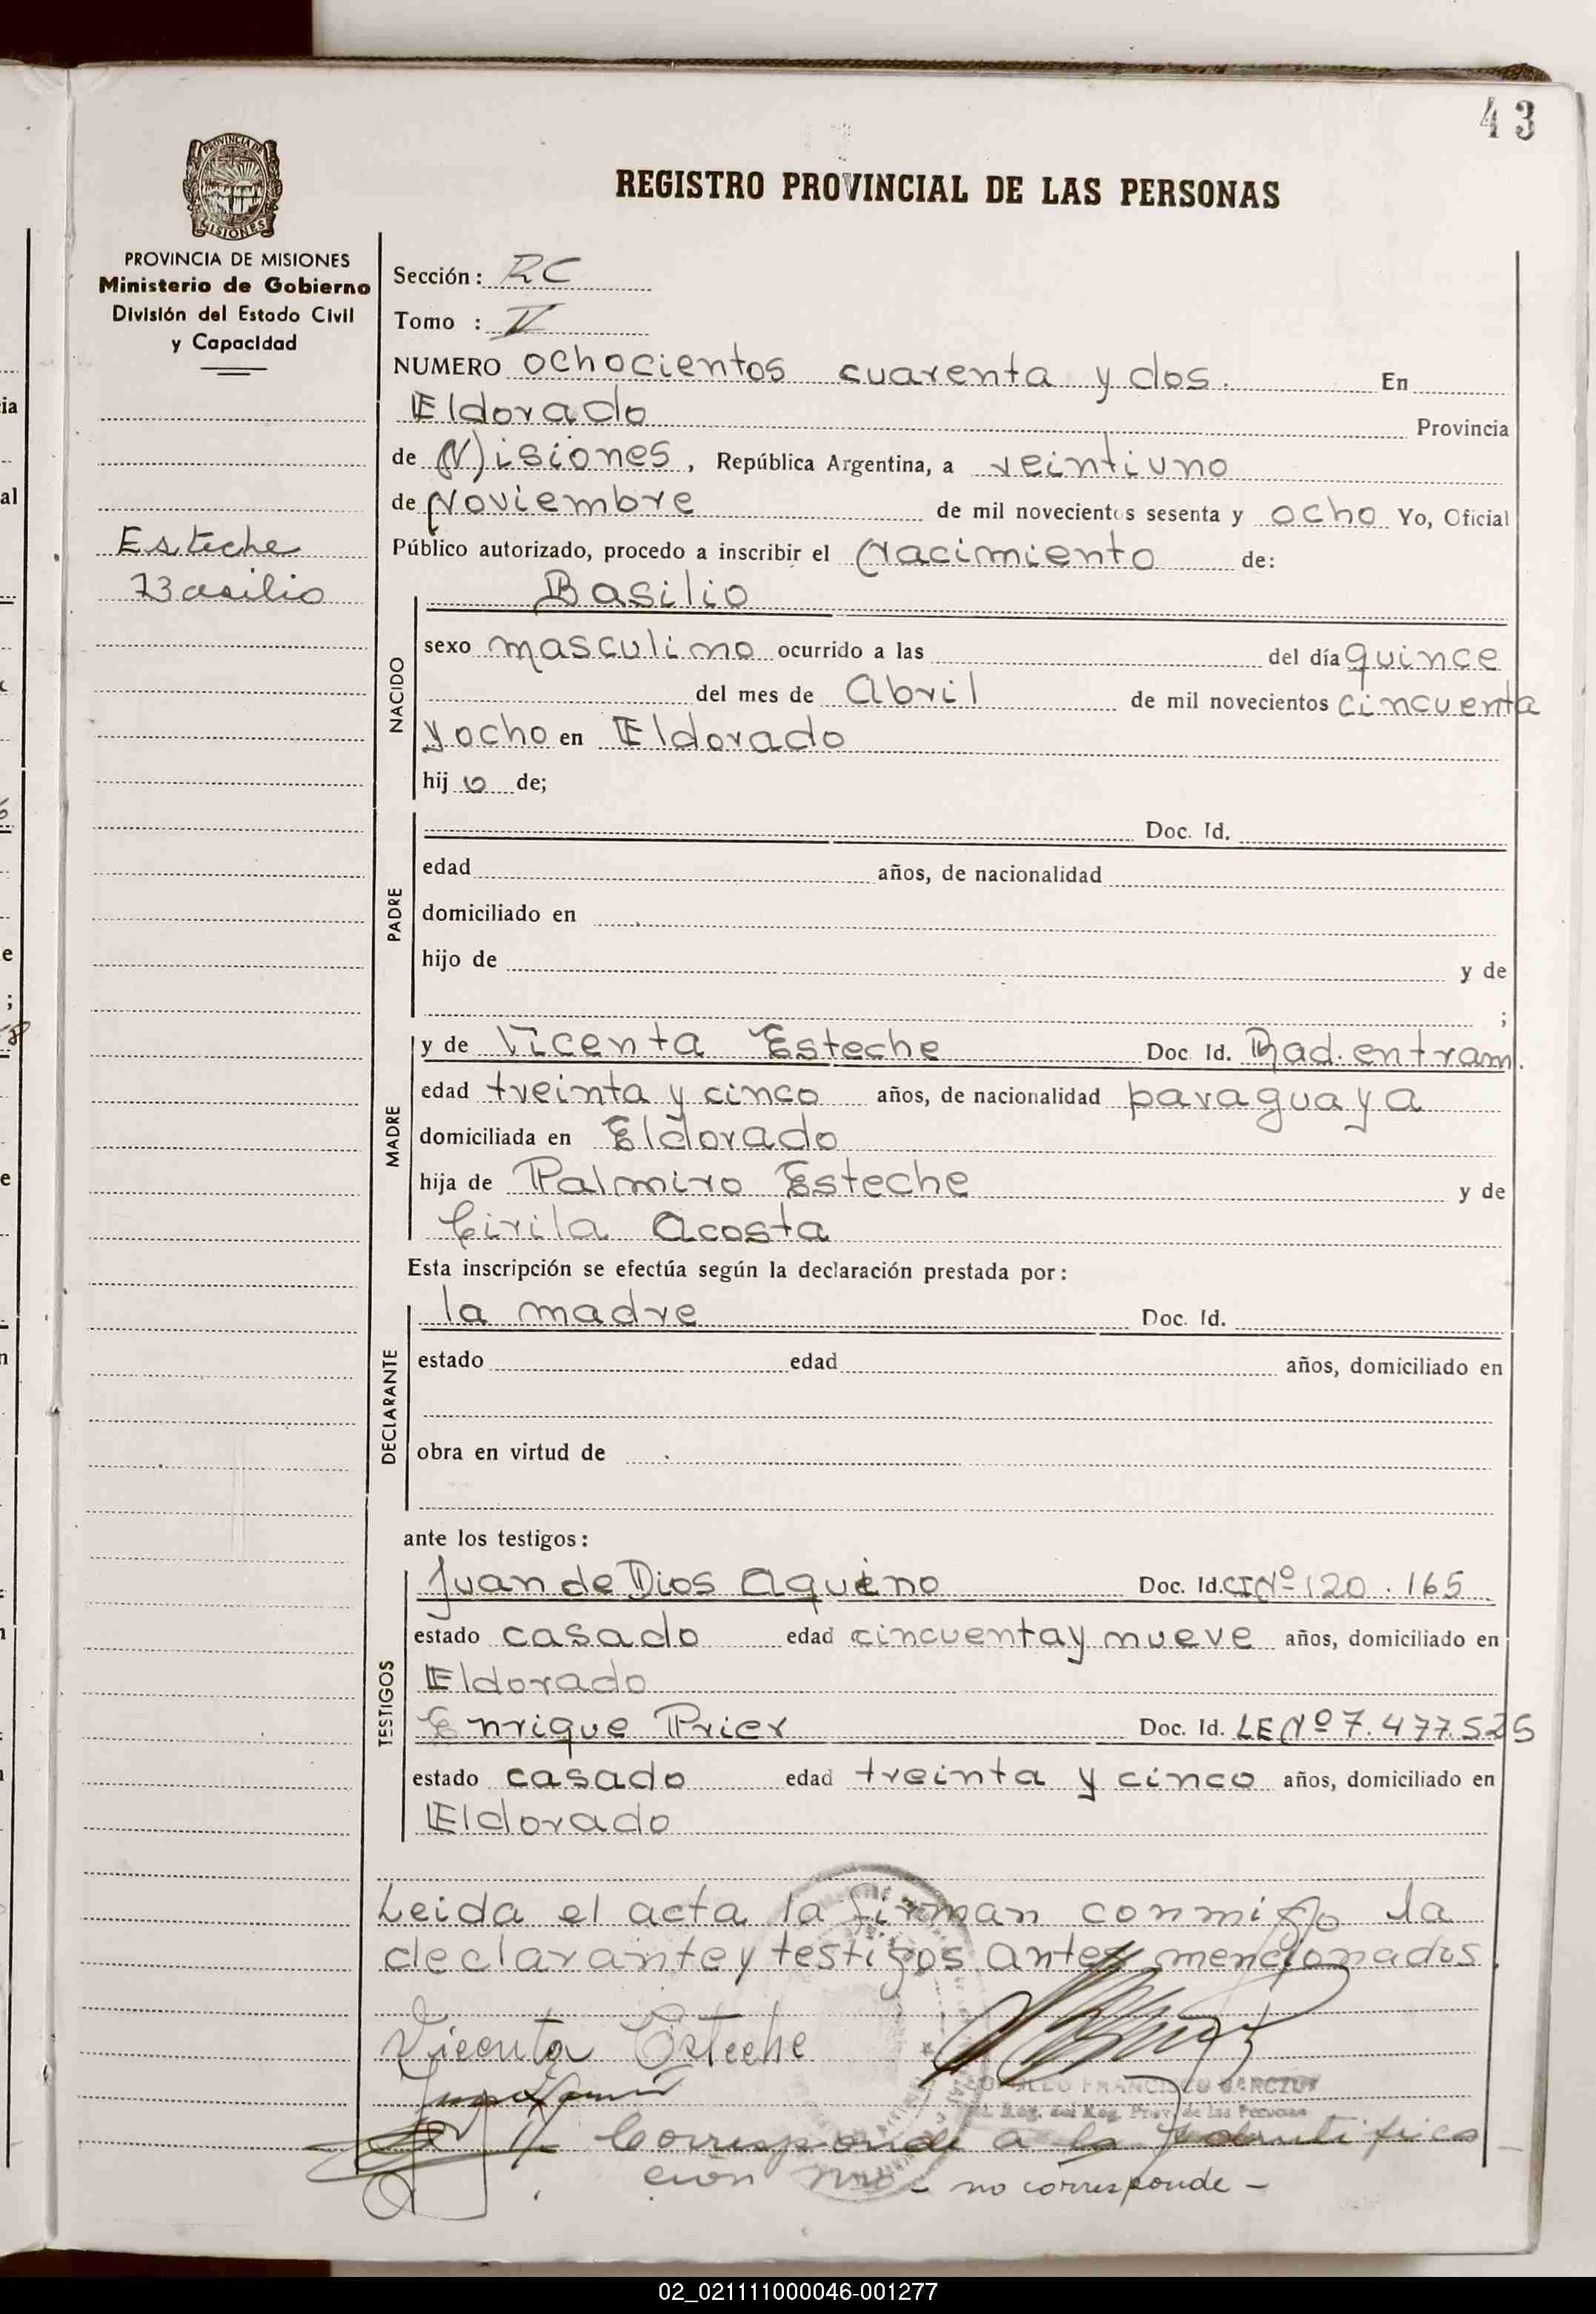 43
REGISTRO PROVINCIAL DE LAS PERSONAS
PROVINCIA DE MISIONES
Ministerio de Gobierno
División del Estado Civil
y Capacidad
Esteche
Basilio
Sección: RC
Tomo : V
NUMERO ochocientos cuarenta y dos. En
Eldorado Provincia
de Misiones, República Argentina, a veintiuno
de Noviembre de mil novecientos sesenta y ocho Yo, Oficial
Público autorizado, procedo a inscribir el Nacimiento de:
NACIDO
Basilio
sexo masculino ocurrido a las del día quince
del mes de Abril de mil novecientos cincuenta
y ocho en Eldorado
hij o de;
PADRE
Doc. Id.
edad años, de nacionalidad
domiciliado en
hijo de y de
;
MADRE
y de Vicenta Esteche Doc Id. Rad. en tram.
edad treinta y cinco años, de nacionalidad paraguaya
domiciliada en Eldorado
hija de Palmiro Esteche y de
Cirila Acosta
Esta inscripción se efectúa según la declaración prestada por:
DECLARANTE
la madre Doc. Id.
estado edad años, domiciliado en
obra en virtud de
ante los testigos:
TESTIGOS
Juan de Dios Aquino Doc. Id. CI Nº 120.165
estado casado edad cincuenta y nueve años, domiciliado en
Eldorado
Enrique Prier Doc. Id. LE Nº 7.477.525
estado casado edad treinta y cinco años, domiciliado en
Eldorado
Leida el acta la firman conmigo la
declarante y testigos antes mencionados.
Vicenta Esteche
FRANCISCO
Reg. del Reg. Prov. de las Personas
Corresponde a la Identifica
cion nro - no corresponde -
02_021111000046-001277